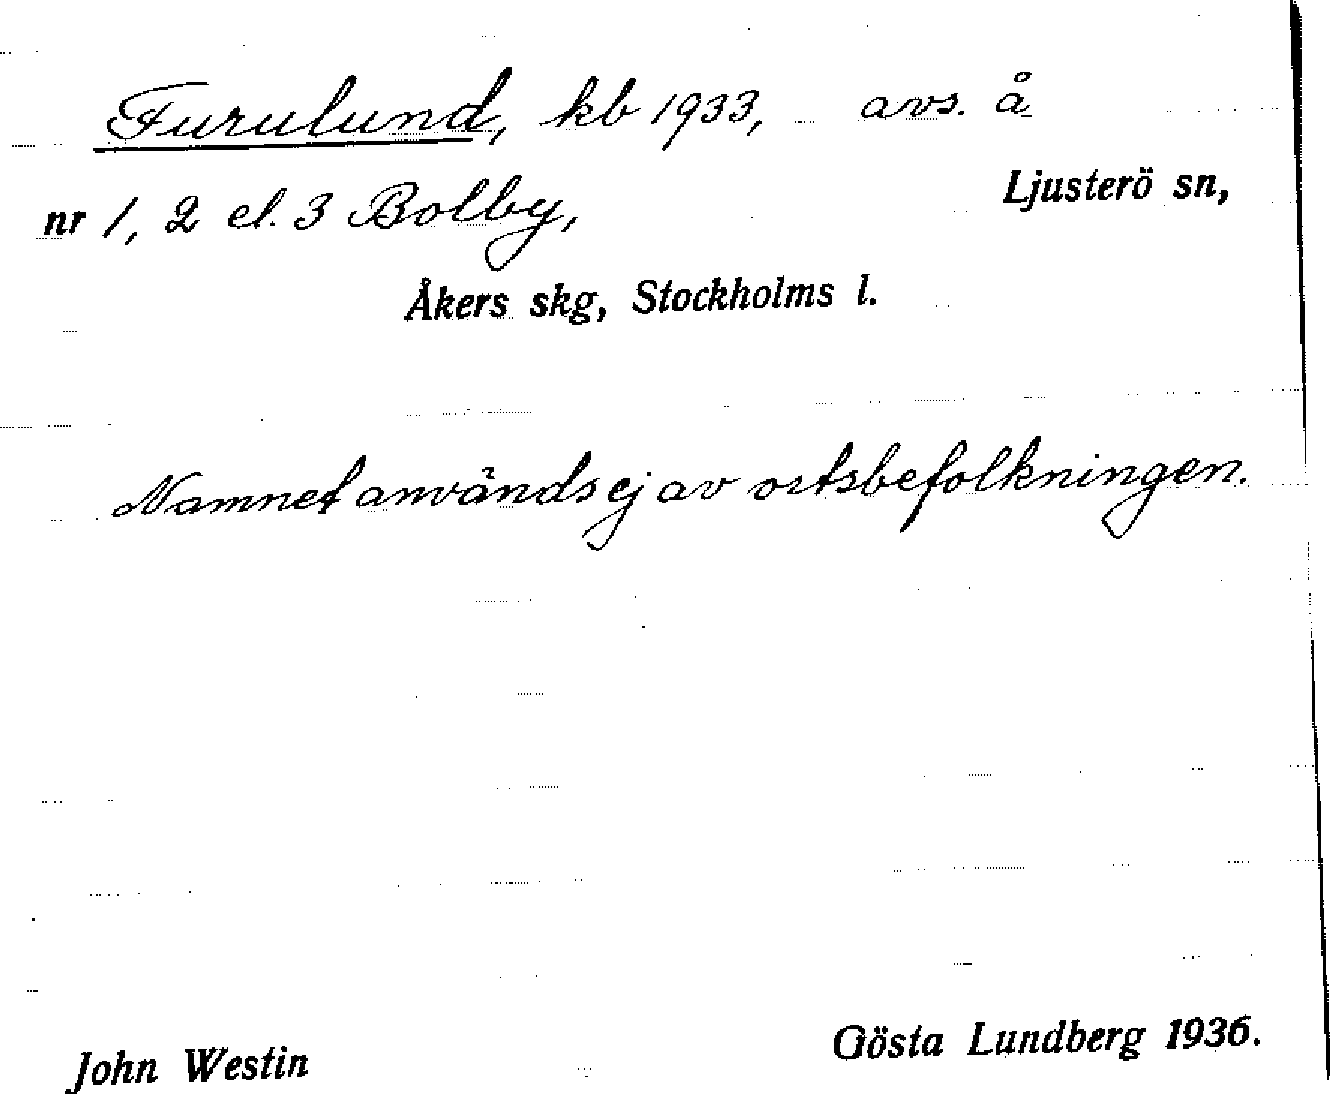 Furulund, kb 1933, avs. å
nr 1, 2 el. 3 Bolby, Ljusterö sn,
Åkers skg, Stockholms l.
Namnet användes ej av ortsbefolkningen.
John Westin Gösta Lundberg 1936.